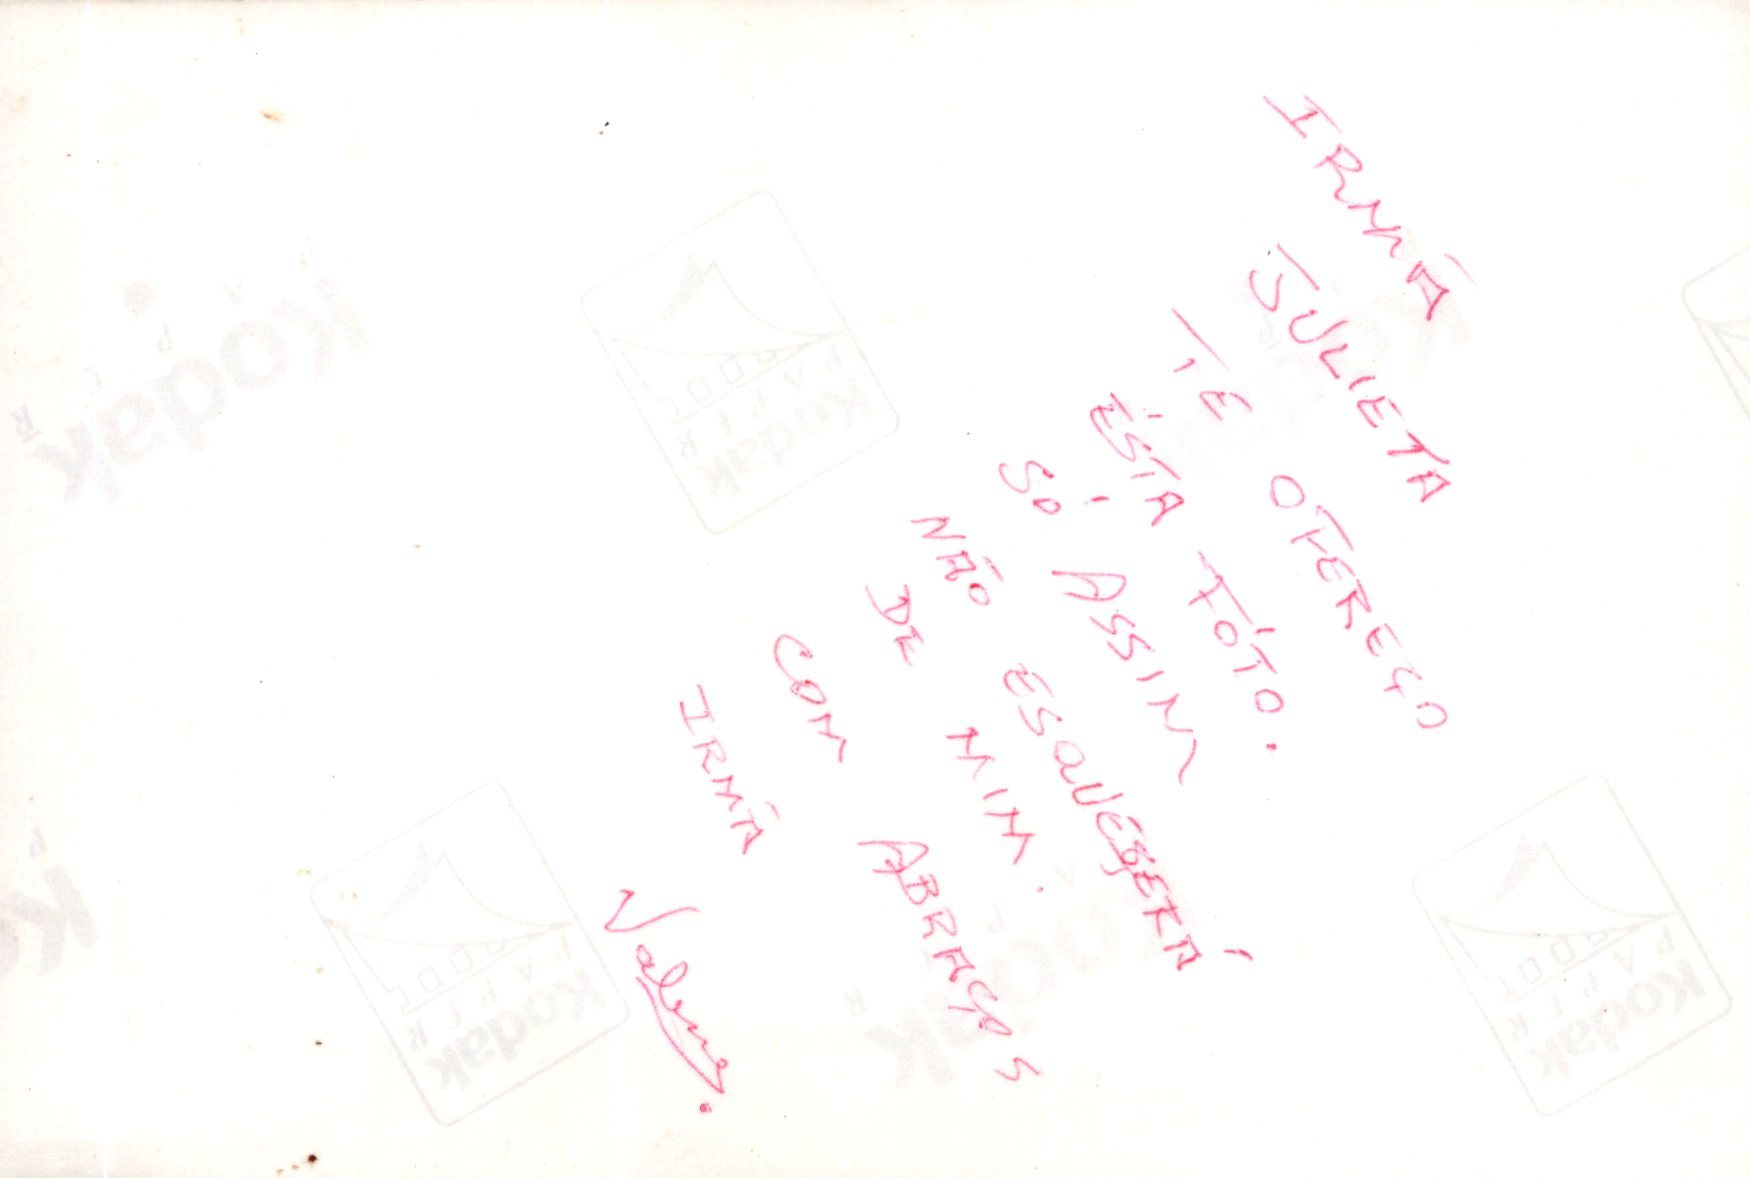 IRMÃ
JULIETA
TE OFEREÇO
ÉSTA FÓTO.
SÓ ASSIM
NÃO ESQUÉSERÁ
DE MIM.
COM ABRAÇOS
IRMÃ
Kodak
PAPER
Kodak
Kodak
PAPER
Kodak
Kodak
PAPER
Kodak